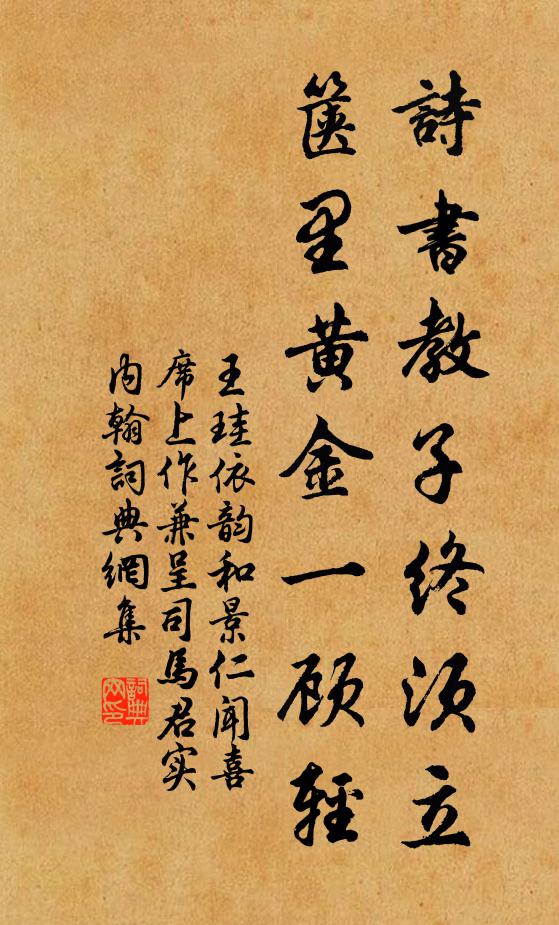 詩書教子終須立
篋里黄金一顾輕
王珪依韵和景仁闻喜
席上作兼呈司馬君实
内翰詞典網集
詞典
网印